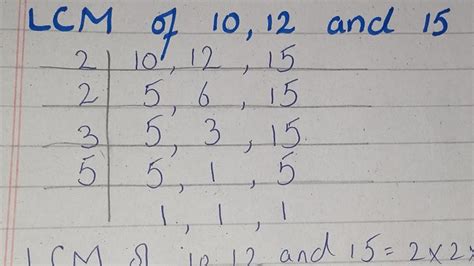 LCM of 10, 12 and 15
2 | 10, 12, 15
2 | 5, 6, 15
3 | 5, 3, 15
5 | 5, 1, 5
1, 1, 1
LCM of 10, 12 and 15 = 2×2×